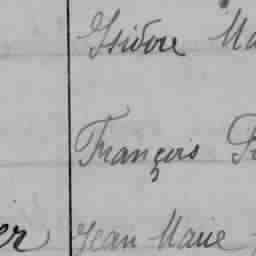 Isidore Ma
François
er Jean Marie